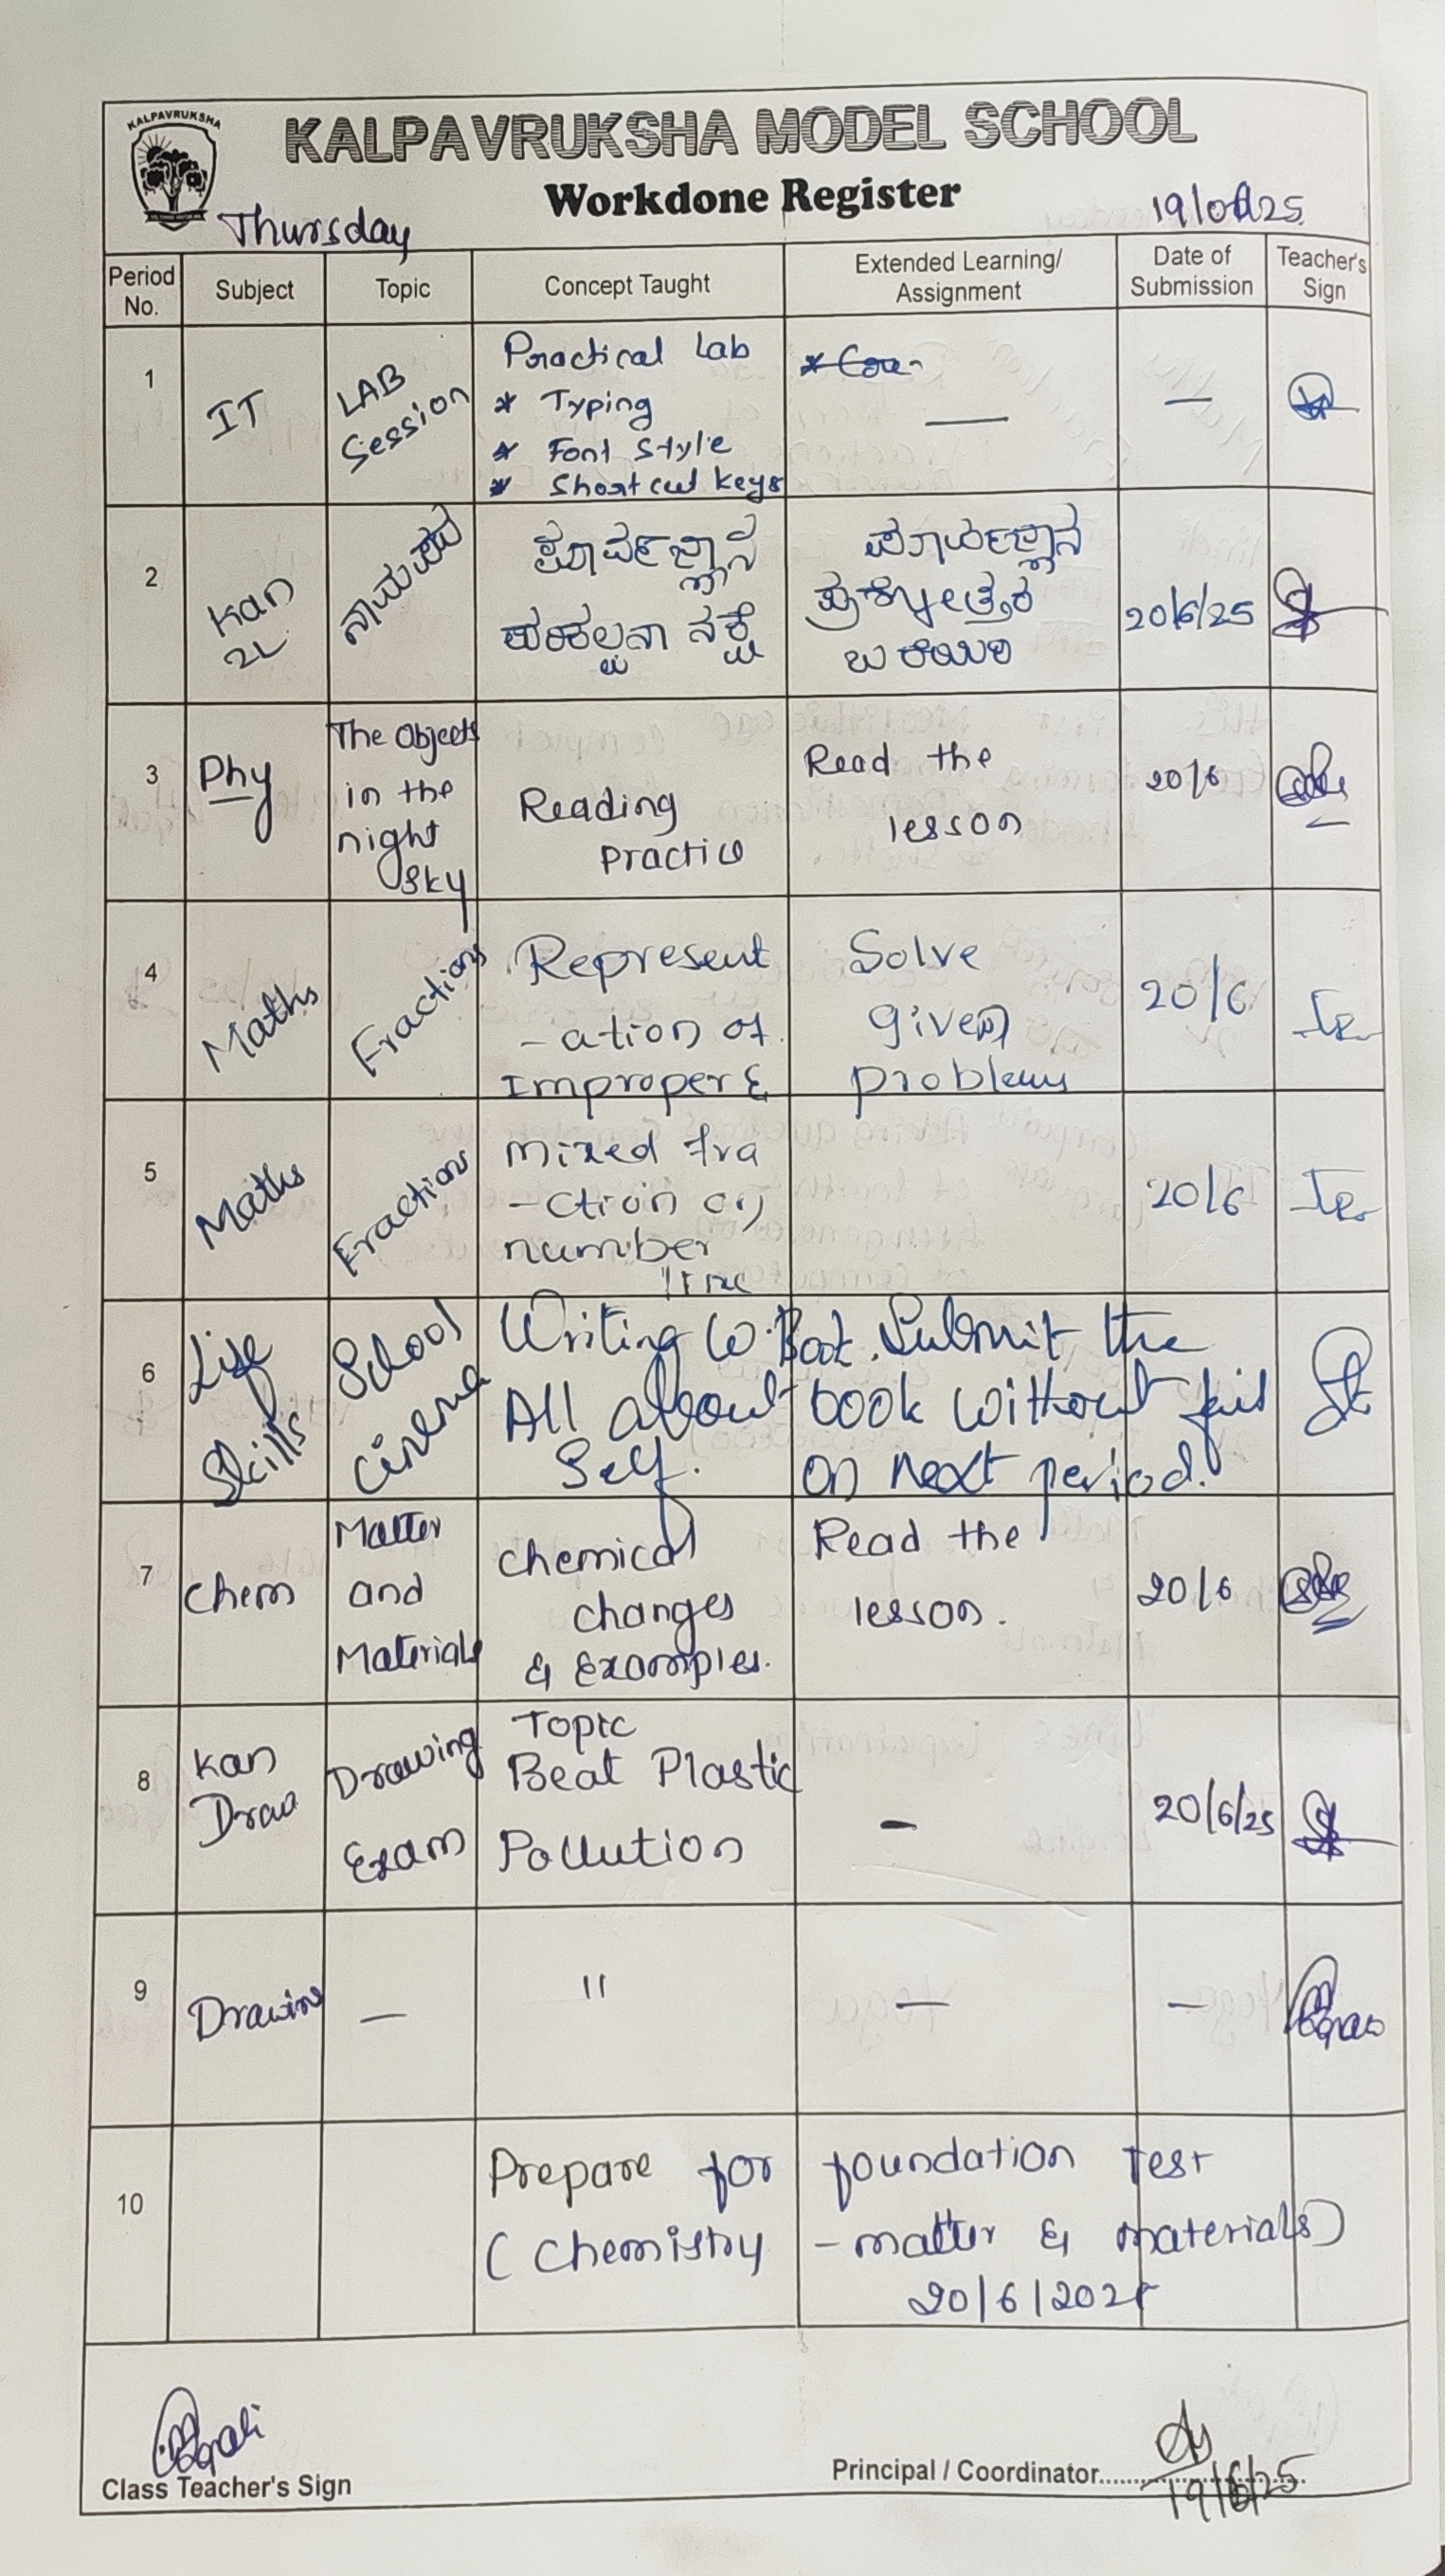 KALPAVRUKSHA
KALPAVRUKSHA MODEL SCHOOL
Workdone Register
Thursday
19/06/25
Period No.
Subject
Topic
Concept Taught
Extended Learning/
Assignment
Date of
Submission
Teacher's
Sign
1
IT
LAB
Session
Practical Lab
* Typing
* Font Style
* Shortcut keys
—
—
2
Kan
2L
ನಾಮಪದ
ಪೂರ್ವಜ್ಞಾನ
ಪರಿಕಲ್ಪನಾ ನಕ್ಷೆ
ಪೂರ್ವಜ್ಞಾನ
ಪ್ರಶ್ನೋತ್ತರ
ಬರೆಯಿರಿ
20/6/25
3
Phy
The Objects
in the
night
sky
Reading
Practice
Read the
lesson
20/6
4
Maths
Fractions
Represent
-ation of
Improper &
Solve
given
problems
20/6
5
Maths
Fractions
mixed fra
-ction on
number
line
20/6
6
Life
Skills
School
Cinema
Writing W.Book. Submit the
All about book without fail
Self. on next period.
7
Chem
Matter
and
Materials
chemical
changes
& Examples.
Read the
lesson.
20/6
8
Kan
Draw
Drawing
Exam
Topic
Beat Plastic
Pollution
—
20/6/25
9
Drawing
—
"
—
—
10
Prepare for foundation Test
(Chemistry - matter & materials)
20/6/2025
Class Teacher's Sign
Principal / Coordinator
19/6/25